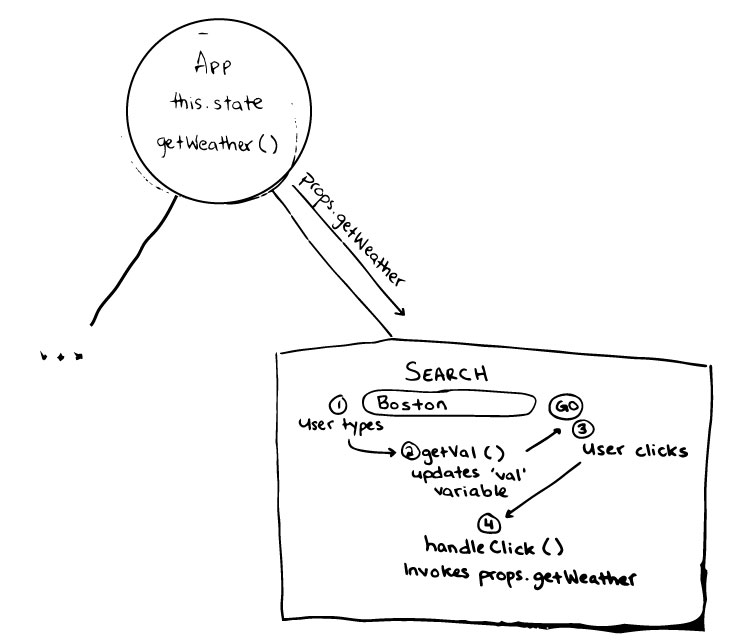 App
this.state
getWeather()
props.getWeather
...
SEARCH
1 Boston GO
User types
3
2 getVal()
User clicks
updates 'val'
variable
4
handleClick()
Invokes props.getWeather